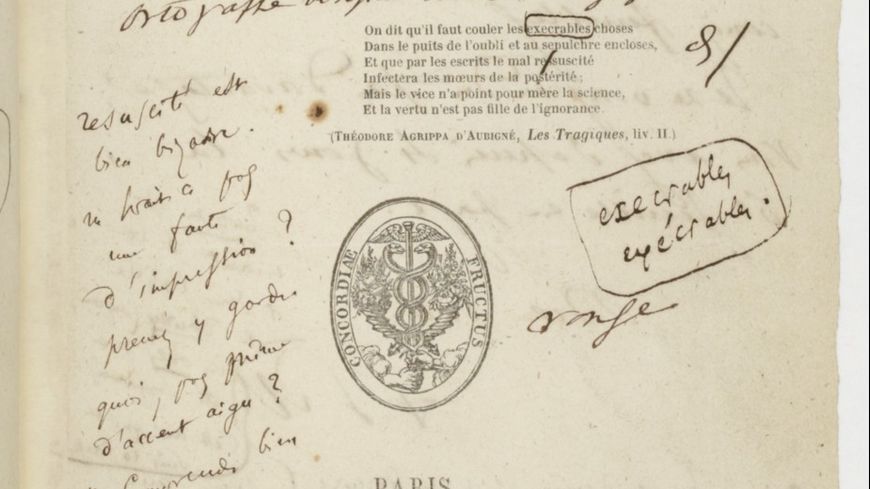 ortographe
On dit qu'il faut couler les execrables choses
Dans le puits de l'oubli et au sepulchre encloses,
Et que par les escrits le mal resuscité
Infectera les mœurs de la postérité ;
Mais le vice n'a point pour mère la science,
Et la vertu n'est pas fille de l'ignorance.
(THÉODORE AGRIPPA D'AUBIGNÉ, Les Tragiques, liv. II.)
resuscité est
bien bizarre.
ne serait-ce pas
une faute
d'impression ?
prenez y garde
quoi, pas même
d'accent aigu ?
comprends bien
execrables
exécrables.
CONCORDIAE FRUCTUS
PARIS